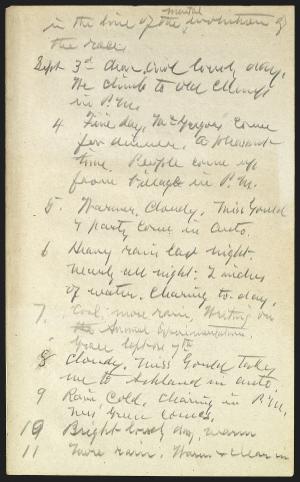 in the line of the mental evolution of
the race.
Sept 3d clear, cool lovely day.
We climb to old Clump
in P.M.
4 Fine day, McGregors come
for dinner. A pleasant
time. People come up
from Village in P.M.
5. Warmer. Cloudy. Miss Gould
& party come in auto.
6 Heavy rain last night.
nearly all night; 2 inches
of water. Clearing to-day.
7 Cool, more rain, Writing on
the Animal
8 Cloudy. Miss Gould takes
me to Ashland in auto.
9 Rain Cold. Clearing in P.M.
Mrs Green comes.
10 Bright lovely day, warm
11 More rain. Warm &